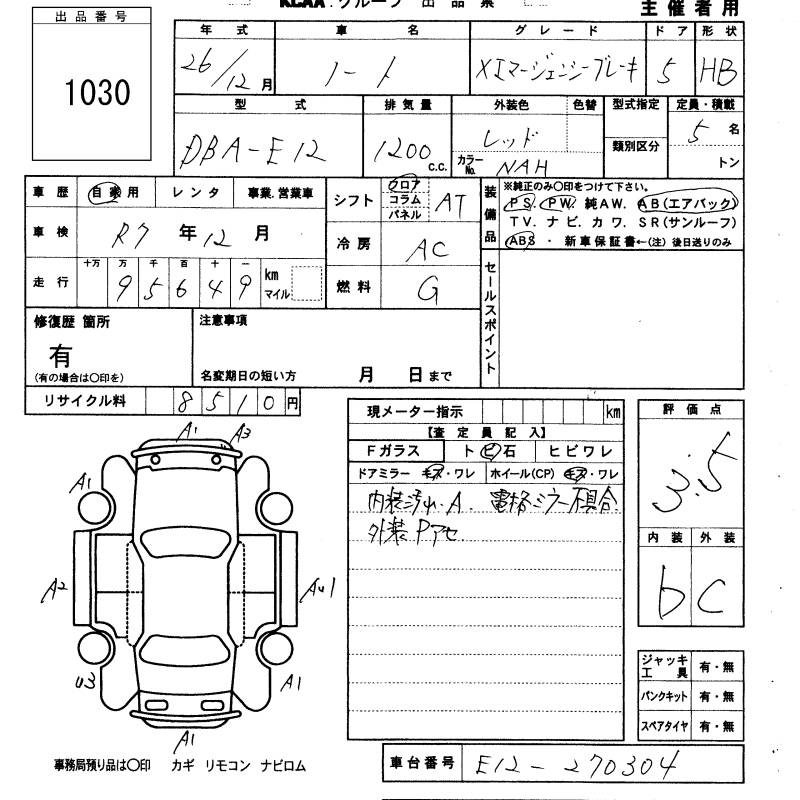 KCAA.グループ 出品票
主催者用
出品番号
1030
年式 車名 グレード ドア 形状
26/12月 ノート Xエマージェンシーブレーキ 5 HB
型式 排気量 外装色 色替 型式指定 定員・積載
DBA-E12 1200 C.C. レッド 類別区分 5名
カラーNo. NAH トン
車歴 自家用 レンタ 事業.営業車
シフト フロア コラム パネル AT
装備品 ※純正のみ〇印をつけて下さい。
PS. PW. 純AW. AB(エアバック)
TV. ナビ. カワ. SR(サンルーフ)
ABS ・ 新車保証書←(注) 後日送りのみ
車検 R7年12月
冷房 AC
走行 十万 万 千 百 十 一
95649 km マイル
燃料 G
セールスポイント
修復歴 箇所
有
(有の場合は〇印を)
注意事項
名変期日の短い方 月 日まで
リサイクル料 8510円
現メーター指示 km
【査定員記入】
Fガラス トビ石 ヒビワレ
ドアミラー キズ・ワレ ホイール(CP) キズ・ワレ
内装汚れ・A. 電格ミラー不具合
外装Pアセ
評価点
3.5
内装 外装
b C
A1 A3
A1
A2 AU1
U3 A1
A1
ジャッキ工具 有・無
パンクキット 有・無
スペアタイヤ 有・無
事務局預り品は〇印 カギ リモコン ナビロム
車台番号 E12-270304